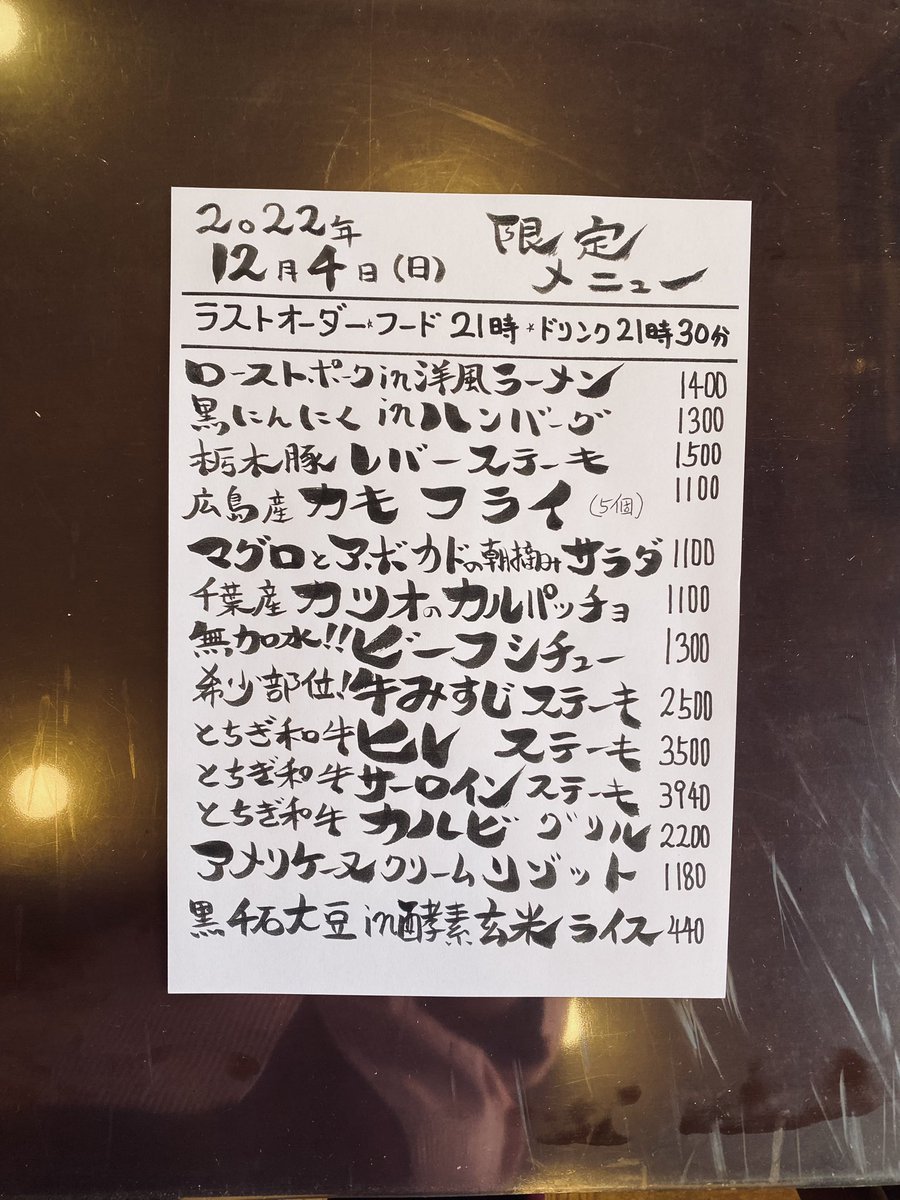 2022年
12月4日(日)
限定
メニュー
ラストオーダー*フード 21時*ドリンク21時30分
ローストポークin洋風ラーメン 1400
黒にんにくinハンバーグ 1300
栃木豚レバーステーキ 1500
広島産カキフライ(5個) 1100
マグロとアボカドの朝摘みサラダ 1100
千葉産カツオのカルパッチョ 1100
無加水!!ビーフシチュー 1300
希少部位!牛みすじステーキ 2500
とちぎ和牛ヒレステーキ 3500
とちぎ和牛サーロインステーキ 3940
とちぎ和牛カルビグリル 2200
アメリケーヌクリームリゾット 1180
黒千石大豆in酵素玄米ライス 440